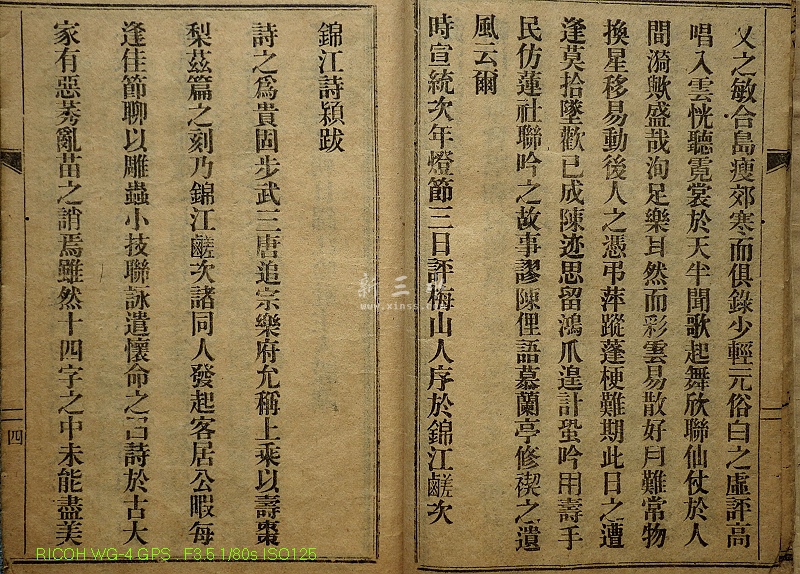 又之敏合島瘦郊寒而俱錄少輕元俗白之虛評高
唱入雲恍聽霓裳於天半聞歌起舞欣聯仙仗於人
間漪歟盛哉洵足樂耳然而彩雲易散好月難常物
換星移易動後人之憑弔萍蹤蓬梗難期此日之遭
逢莫拾墜歡已成陳迹思留鴻爪遑計蛩吟用壽手
民仿蓮社聯吟之故事謬陳俚語慕蘭亭修禊之遺
風云爾
時宣統次年燈節三日評梅山人序於錦江鹺次
錦江詩穎跋
詩之為貴固步武三唐追宗樂府允稱上乘以壽棗
梨茲篇之刻乃錦江鹺次諸同人發起客居公暇每
逢佳節聊以雕蟲小技聯詠遣懷命之曰詩於古大
家有惡莠亂苗之誚焉雖然十四字之中未能盡美
四
新三
www.xinss
RICOH WG-4 GPS . F3.5 1/80s ISO125